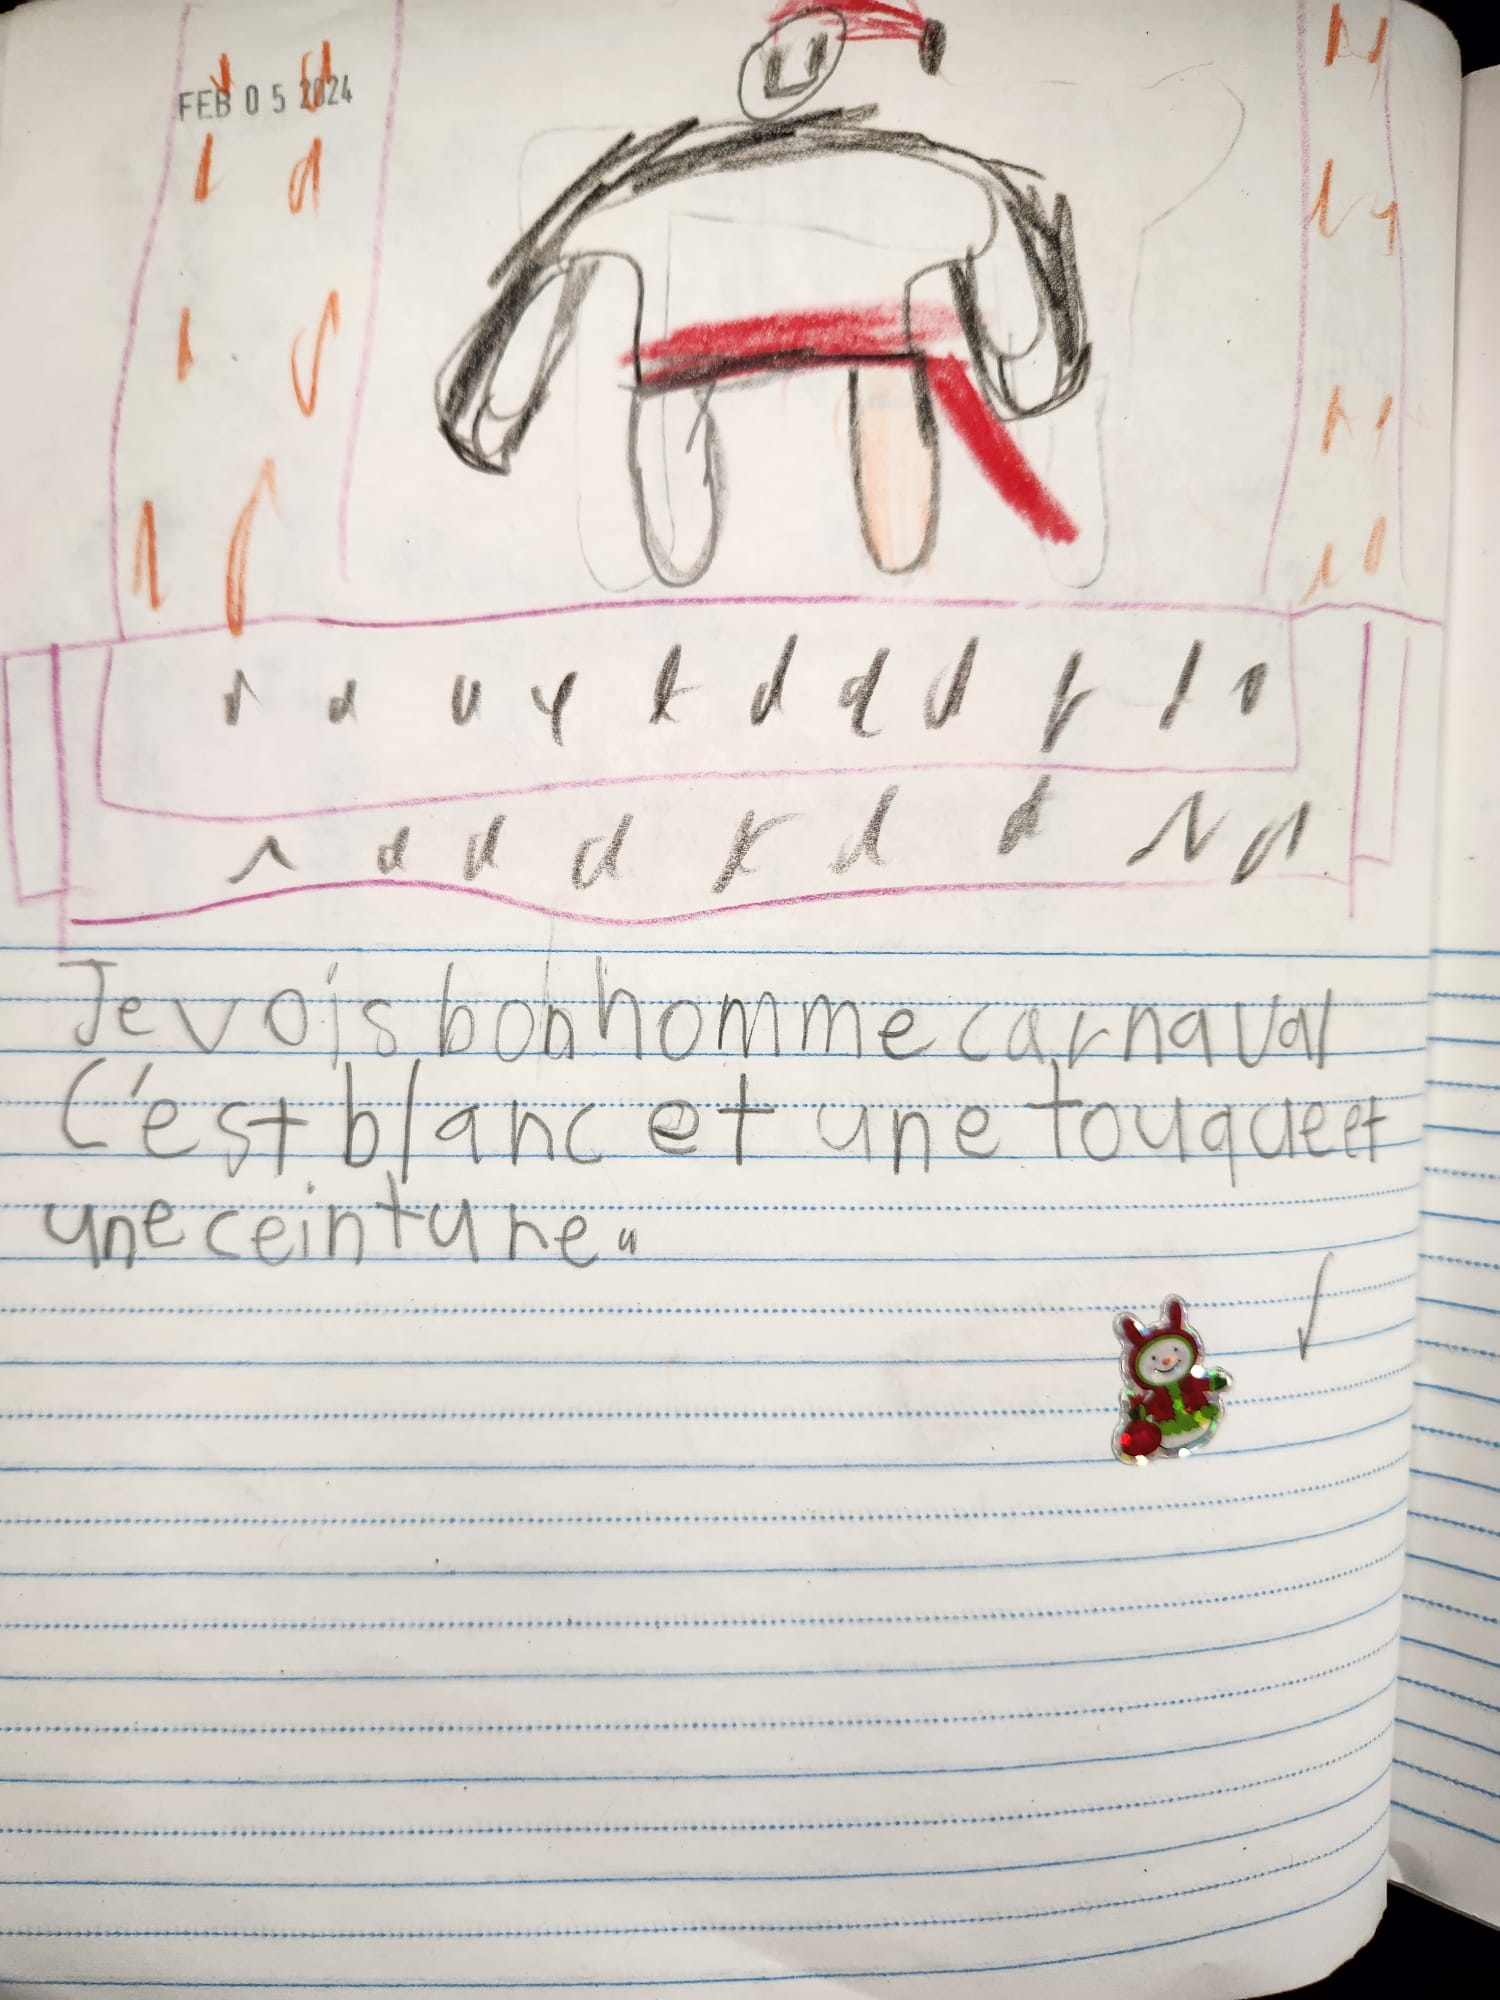 FEB 05 2024
Je vois bonhomme carnaval
C'est blanc et une touque et
une ceinture.